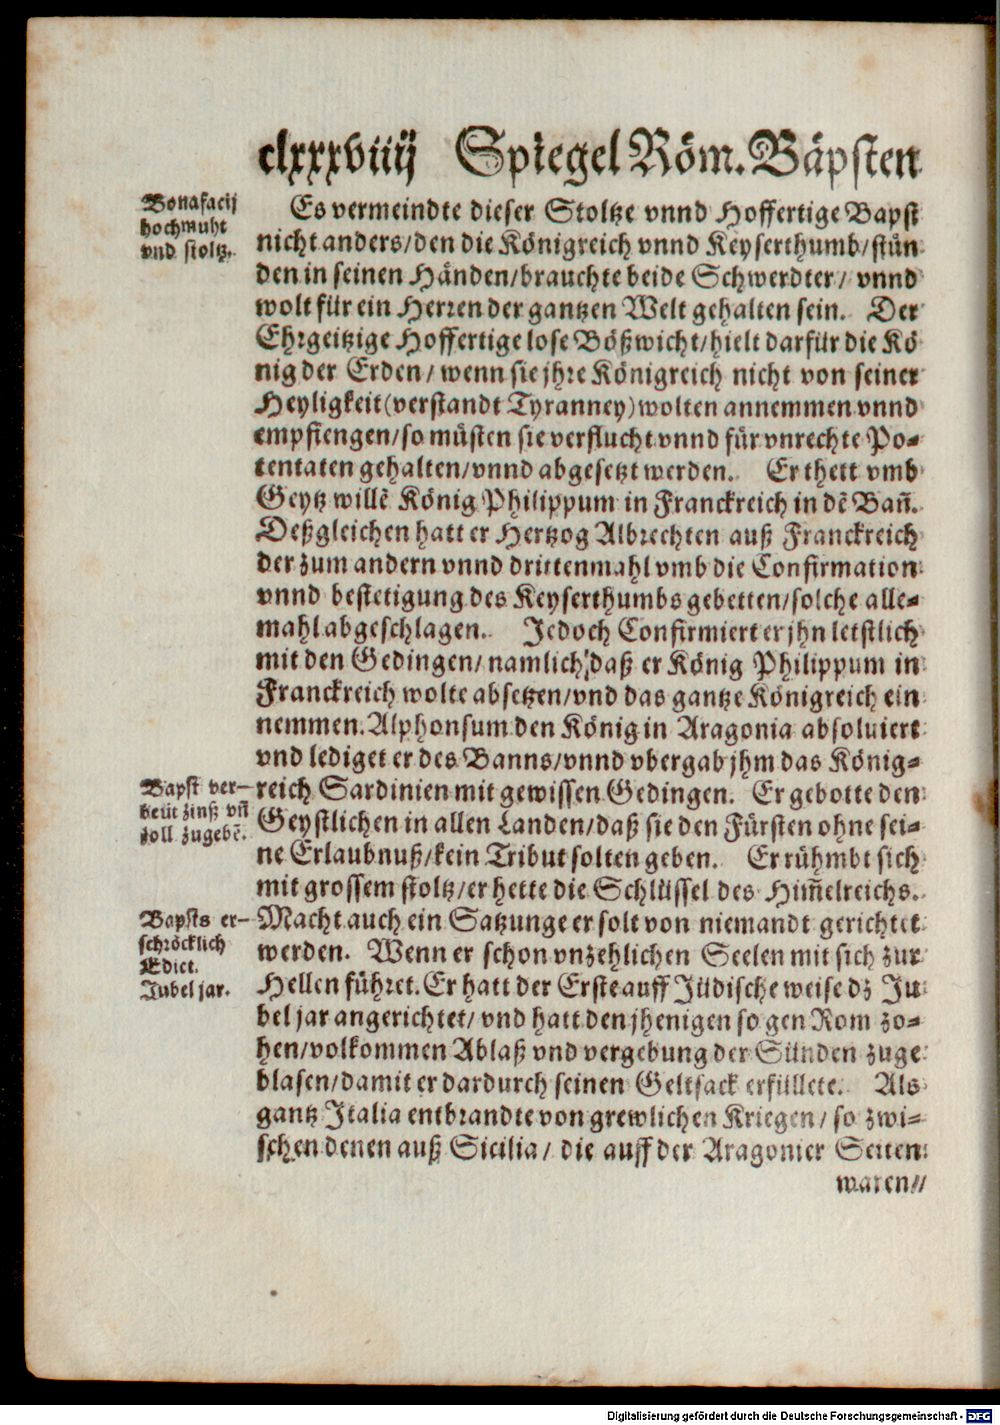 clxxxviiij Spiegel Röm. Bäpsten
Bonafacij
hochmuht
vnd stoltz.
Es vermeindte dieser Stoltze vnnd Hoffertige Bapst
nicht anders/den die Königreich vnnd Keyserthumb/stün
den in seinen Händen/brauchte beide Schwerdter/ vnnd
wolt für ein Herren der gantzen Welt gehalten sein. Der
Ehrgeitzige Hoffertige lose Bößwicht/hielt darfür die Kö
nig der Erden/ wenn sie jhre Königreich nicht von seiner
Heyligkeit(verstandt Tyranney)wolten annemmen vnnd
empfiengen/so müsten sie verflucht vnnd für vnrechte Po-
tentaten gehalten/vnnd abgesetzt werden. Er thett vmb
Geytz willē König Philippum in Franckreich in dē Bañ.
Deßgleichen hatt er Hertzog Albrechten auß Franckreich
der zum andern vnnd drittenmahl vmb die Confirmation
vnnd bestetigung des Keyserthumbs gebetten/solche alle-
mahl abgeschlagen. Jedoch Confirmiert er jhn letstlich
mit den Gedingen/ namlich/daß er König Philippum in
Franckreich wolte absetzen/vnd das gantze Königreich ein
nemmen. Alphonsum den König in Aragonia absoluiert
vnd lediget er des Banns/vnnd vbergab jhm das König-
Bapst ver-
beüt zinß vñ
zoll zugebē.
reich Sardinien mit gewissen Gedingen. Er gebotte den
Geystlichen in allen Landen/daß sie den Fürsten ohne sei-
ne Erlaubnuß/kein Tribut solten geben. Er rühmbt sich
mit grossem stoltz/er hette die Schlüssel des Him̃elreichs.
Bapsts er-
schröcklich
Edict.
Jubel jar.
Macht auch ein Satzunge er solt von niemandt gerichtet
werden. Wenn er schon vnzehlichen Seelen mit sich zur
Hellen führet. Er hatt der Erste auff Jüdische weise dz Ju
bel jar angerichtet/ vnd hatt den jhenigen so gen Rom zo-
hen/volkommen Ablaß vnd vergebung der Sünden zuge
blasen/damit er dardurch seinen Geltsack erfüllete. Als
gantz Italia entbrandte von grewlichen Kriegen/ so zwi-
schen denen auß Sicilia/ die auff der Aragonier Seiten
waren//
Digitalisierung gefördert durch die Deutsche Forschungsgemeinschaft - DFG